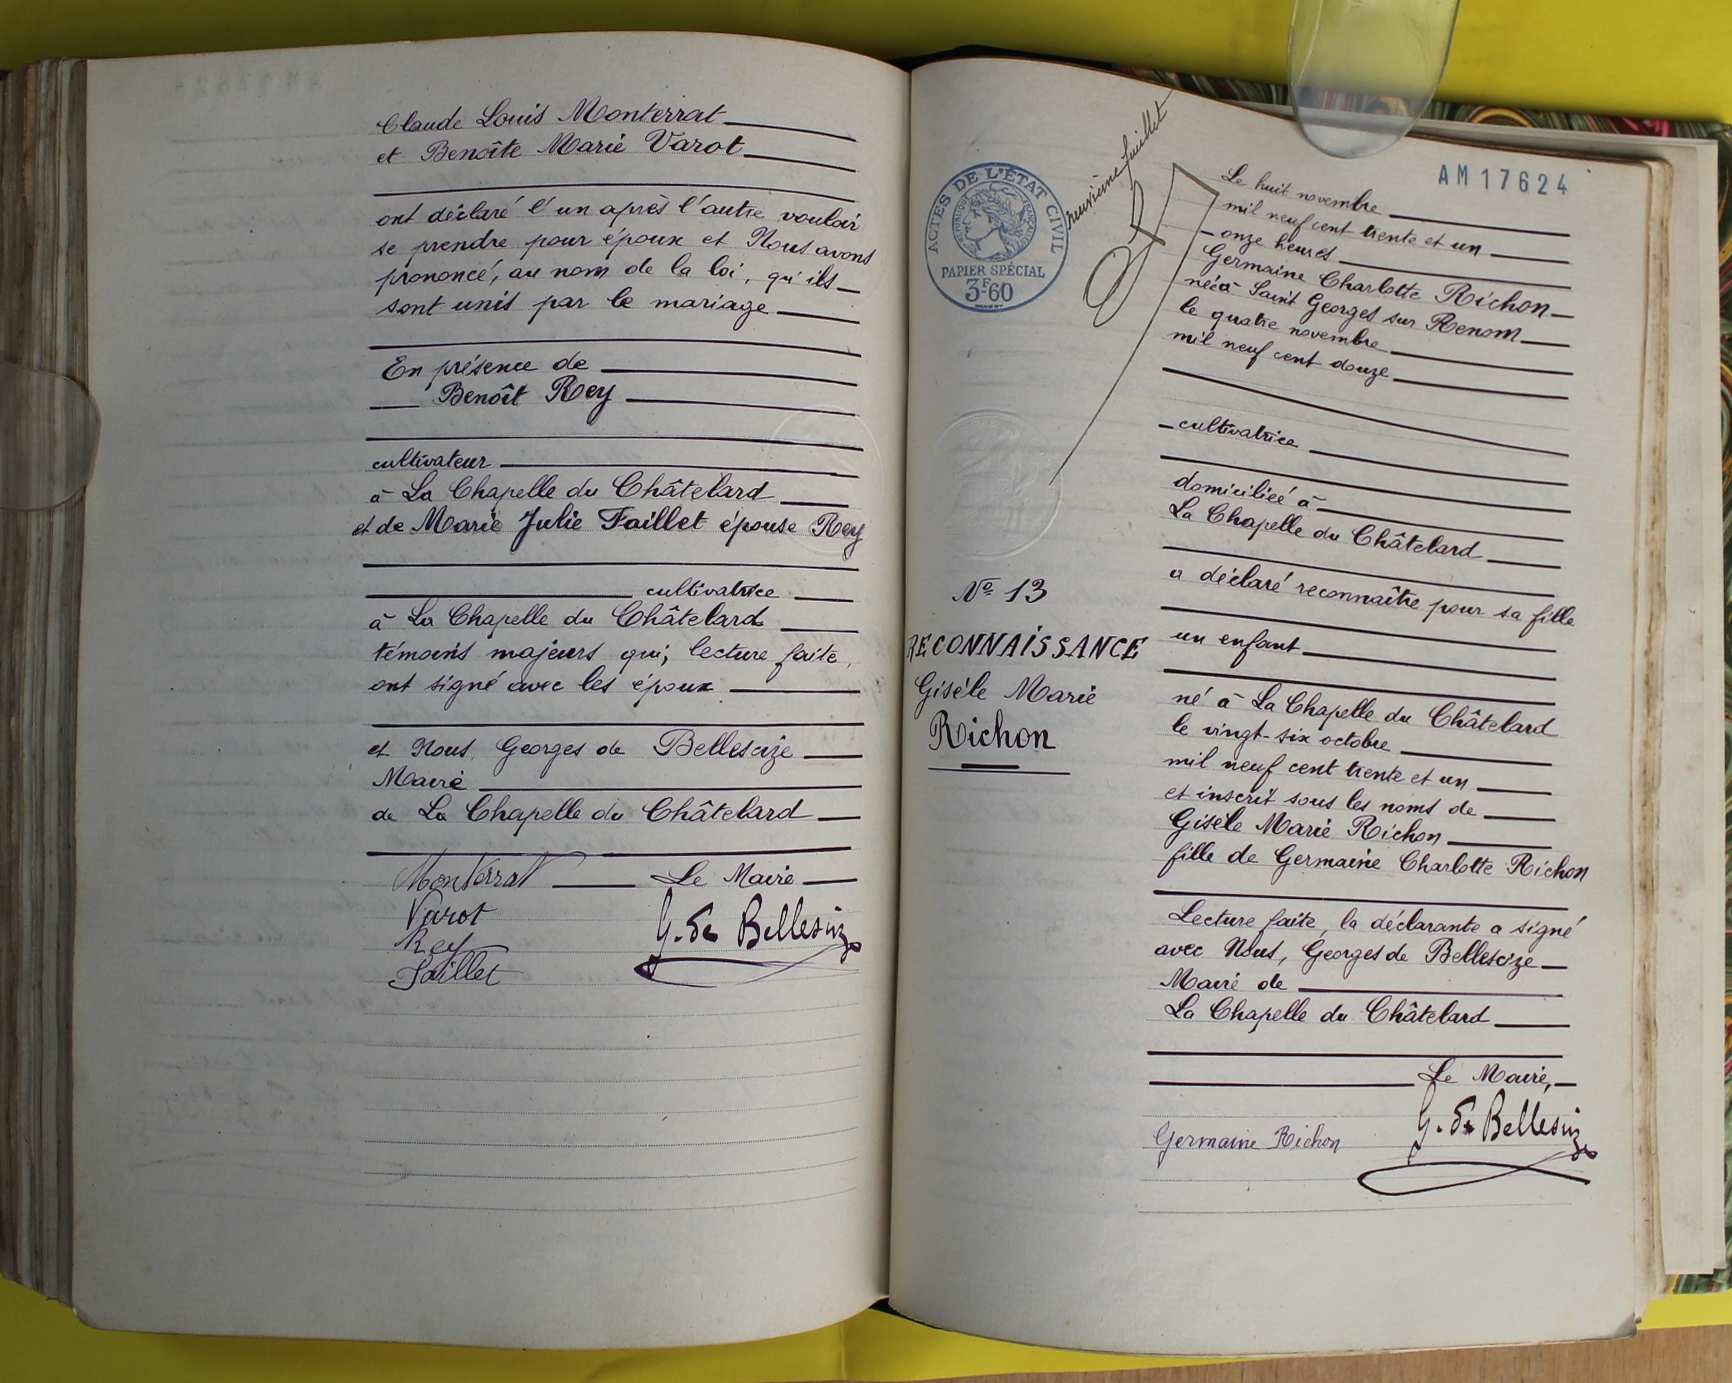 Claude Louis Monterrat
et Benoîte Marie Varot
ont déclaré l'un après l'autre vouloir
se prendre pour époux et Nous avons
prononcé, au nom de la loi, qu'ils
sont unis par le mariage
En présence de
Benoît Rey
cultivateur
à La Chapelle du Châtelard
et de Marie Julie Faillet épouse Rey
cultivatrice
à La Chapelle du Châtelard
témoins majeurs qui, lecture faite,
ont signé avec les époux
et Nous, Georges de Bellescize
Maire
de La Chapelle du Châtelard
Monterrat Le Maire
Varot
G. de Bellescize
Rey
Faillet
neuvième feuillet
ACTES DE L'ÉTAT CIVIL
RÉPUBLIQUE FRANÇAISE
PAPIER SPÉCIAL
3F60
AM17624
Le huit novembre
mil neuf cent trente et un
onze heures
Germaine Charlotte Richon
née à Saint Georges sur Renom
le quatre novembre
mil neuf cent douze
cultivatrice
domiciliée à
La Chapelle du Châtelard
a déclaré reconnaître pour sa fille
un enfant
né à La Chapelle du Châtelard
le vingt-six octobre
mil neuf cent trente et un
et inscrit sous les noms de
Gisèle Marie Richon
fille de Germaine Charlotte Richon
Lecture faite, la déclarante a signé
avec Nous, Georges de Bellescize
Maire de
La Chapelle du Châtelard
Le Maire,
Germaine Richon G. de Bellescize
No 13
RECONNAISSANCE
Gisèle Marie
Richon